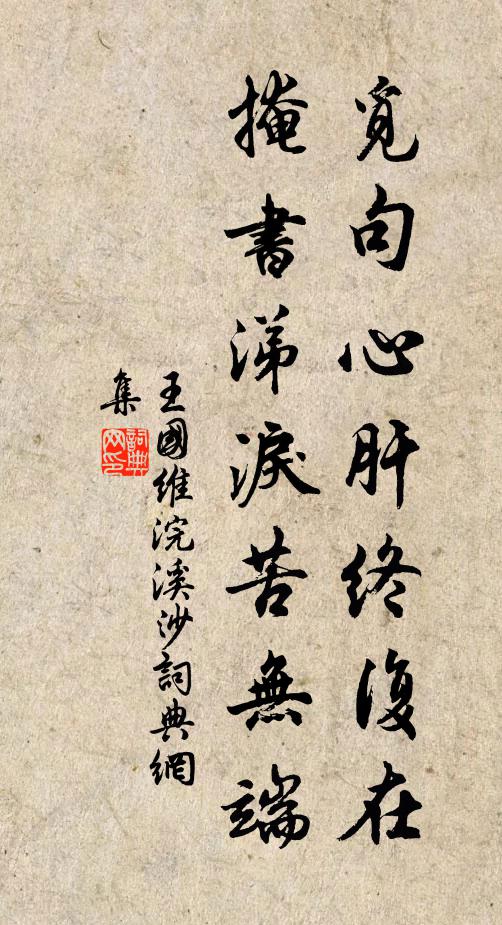 覓句心肝終復在
掩書涕淚苦無端
王國維浣溪沙詞典網
集
詞典网印